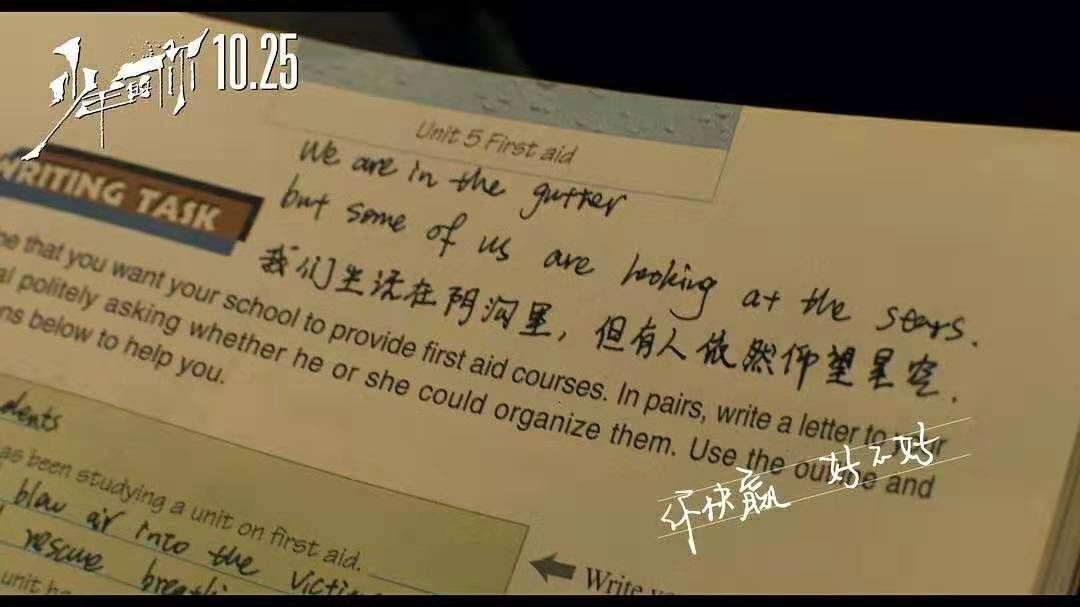 少年的你 10.25
Unit 5 First aid
We are in the gutter
but some of us are looking at the stars.
我们生活在阴沟里，但有人依然仰望星空.
WRITING TASK
that you want your school to provide first aid courses. In pairs, write a letter to your
politely asking whether he or she could organize them. Use the outline and
below to help you.
你快赢 好不好
dents
as been studying a unit on first aid.
blow air into the
rescue
unit
Write